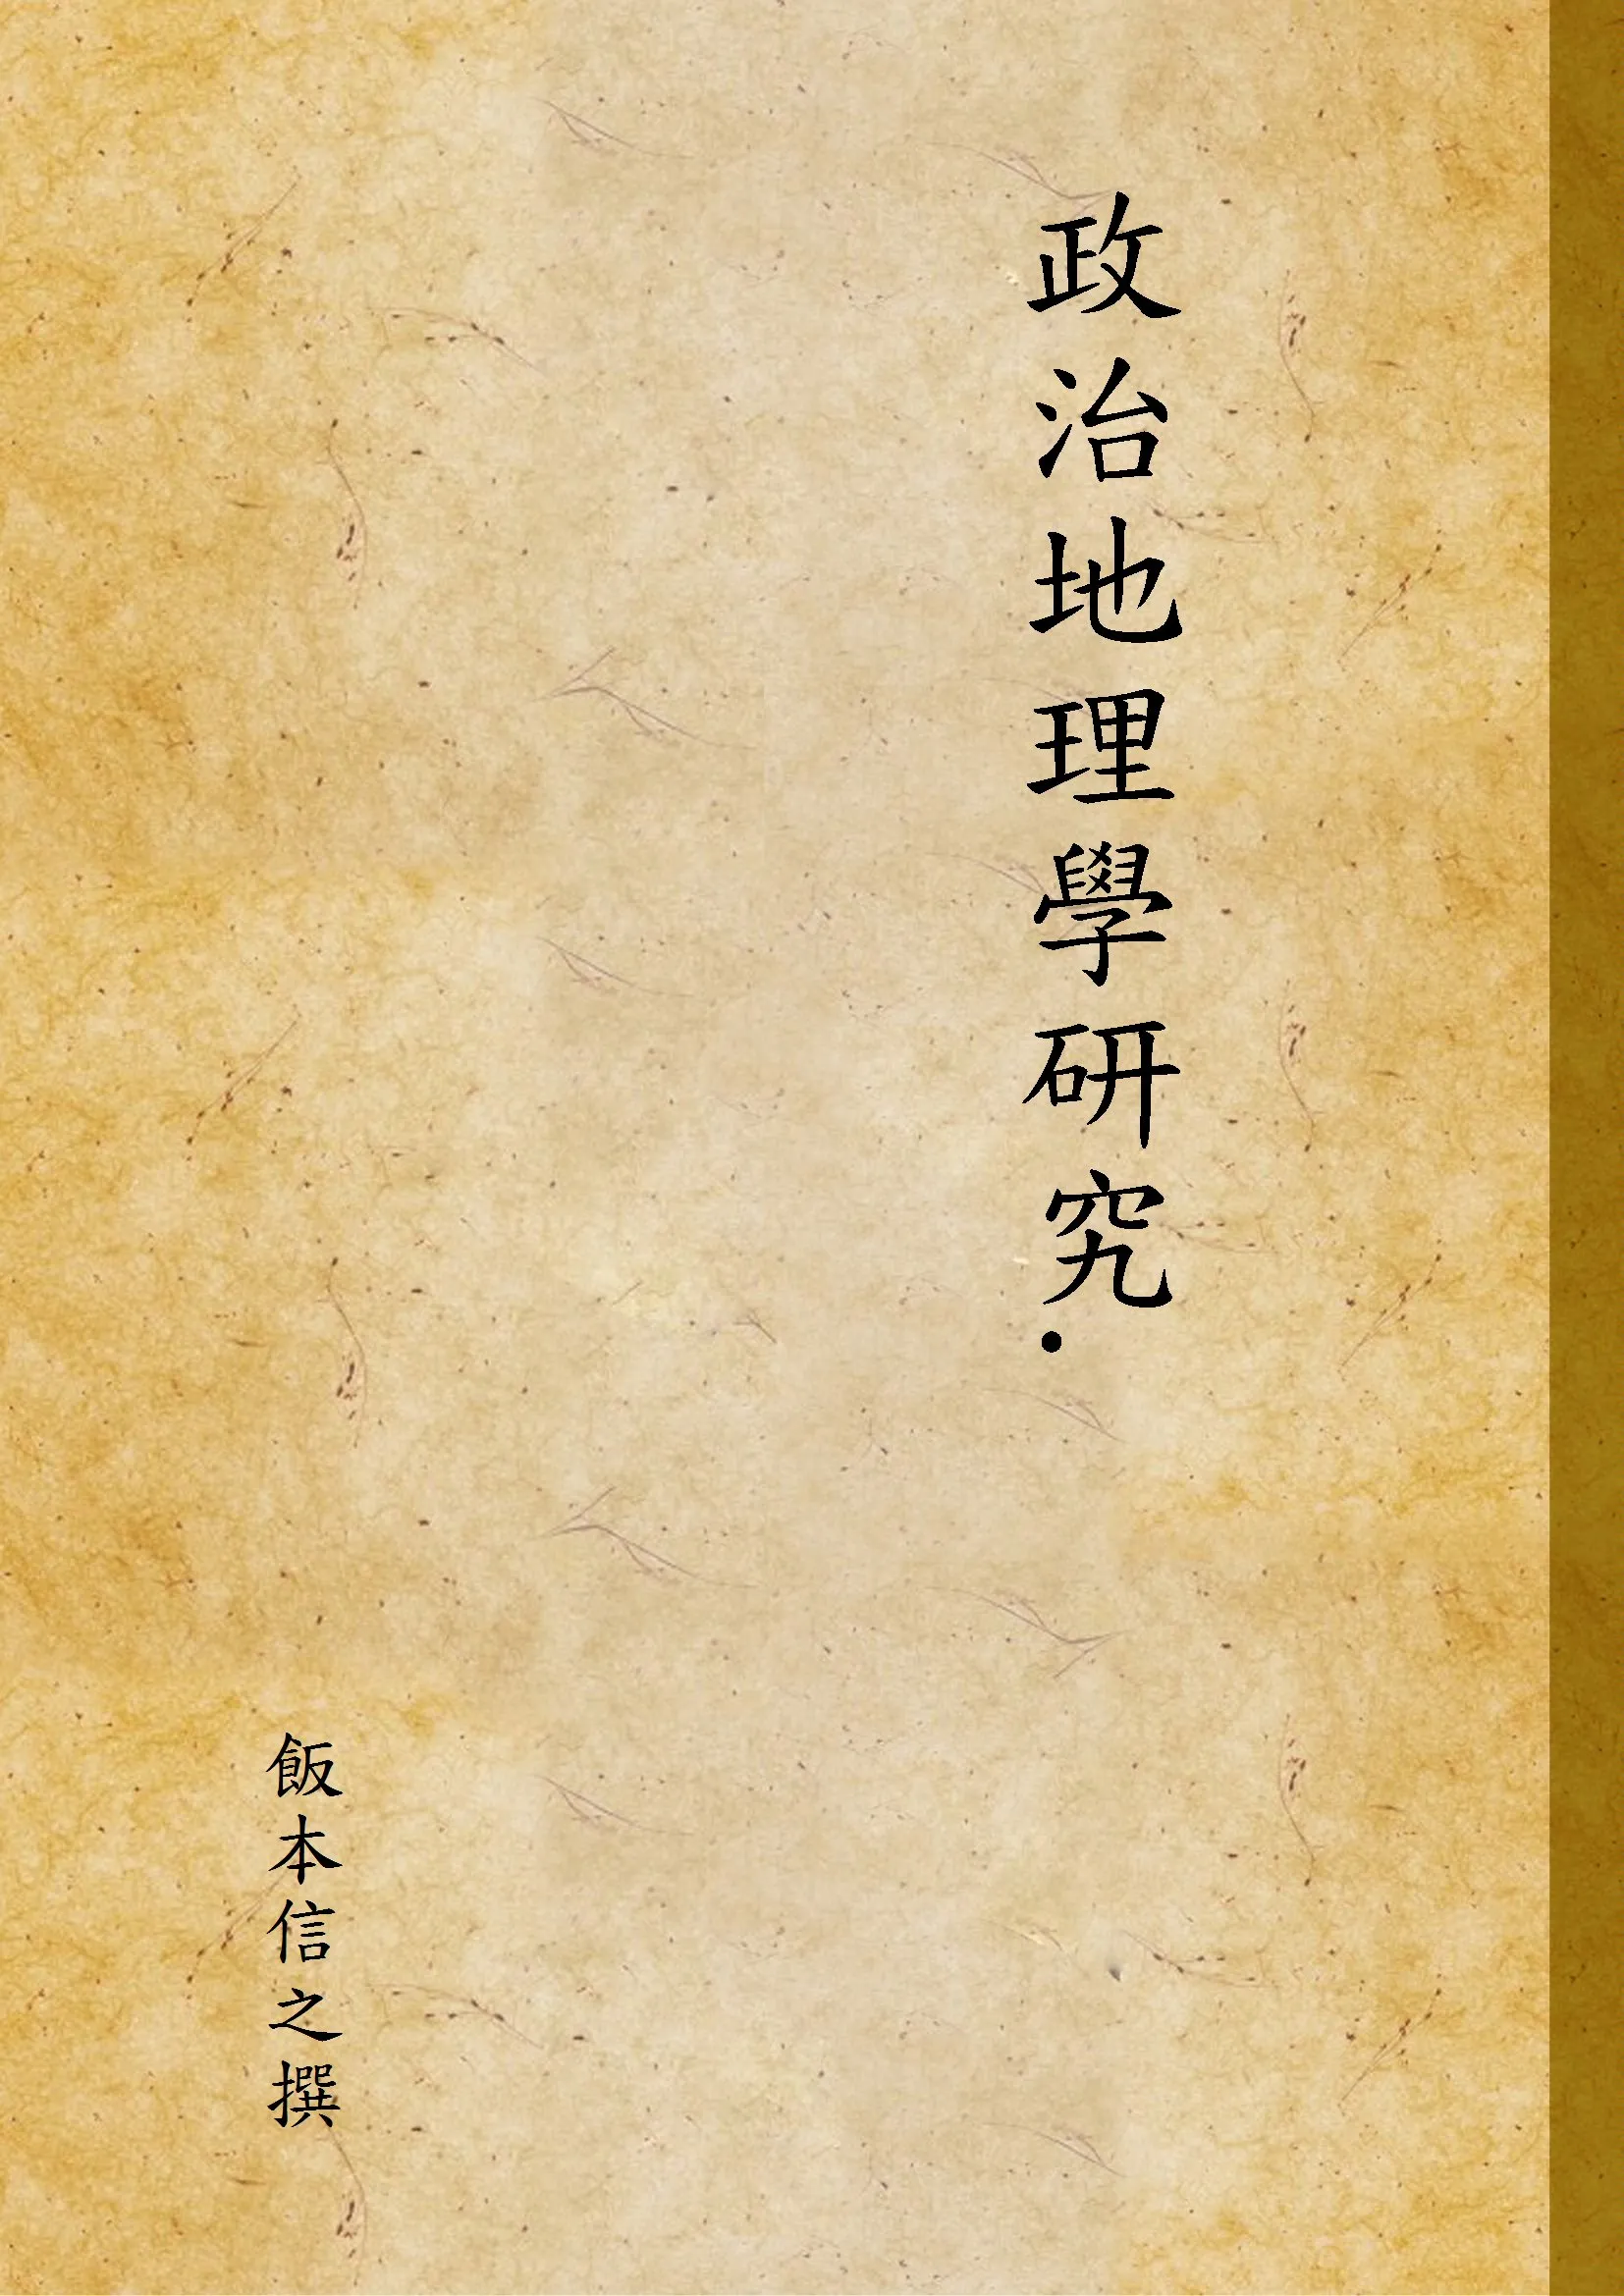 政治地理學研究.
飯本信之撰